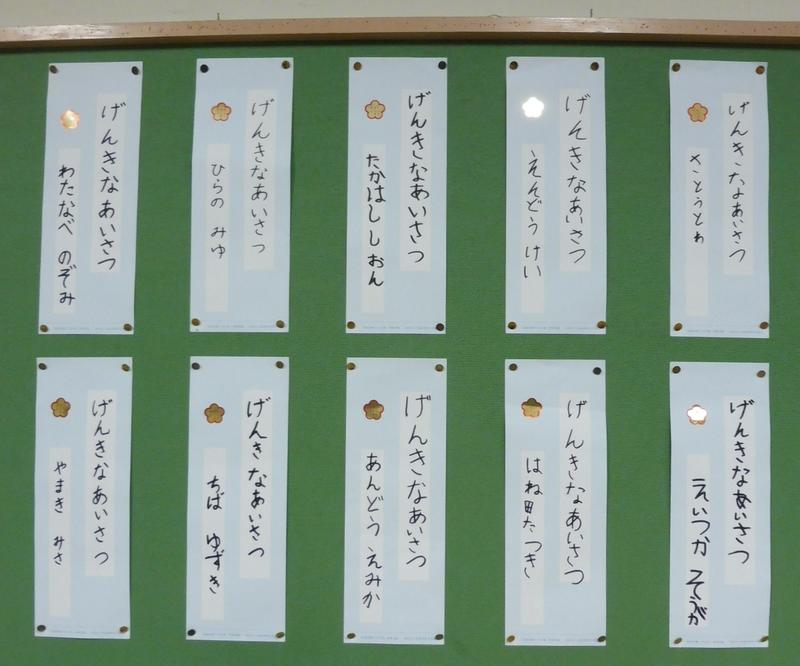 げんきなあいさつ
さとうとわ
げんきなあいさつ
えんどう けい
げんきなあいさつ
たかはし しおん
げんきなあいさつ
ひらの みゆ
げんきなあいさつ
わたなべ のぞみ
げんきなあいさつ
えいつか そうが
げんきなあいさつ
はね田 たつき
げんきなあいさつ
あんどう えみか
げんきなあいさつ
ちば ゆずき
げんきなあいさつ
やまき みさ